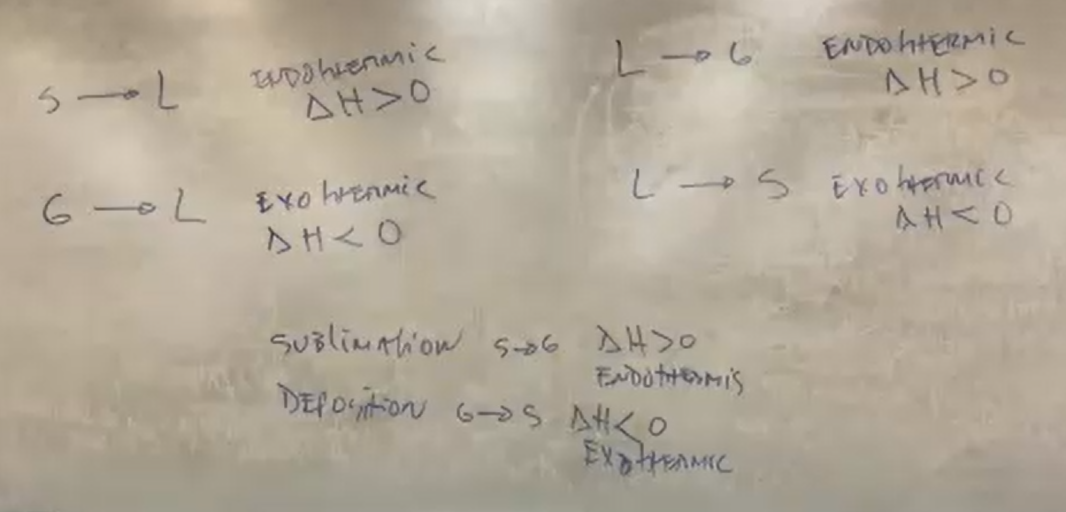 S → L ENDOthERMIC
ΔH > 0
L → G ENDOthERMIC
ΔH > 0
G → L EXOthERMIC
ΔH < 0
L → S EXOthERMIC
ΔH < 0
SUBLIMATION S→G ΔH>0
ENDOTHERMIS
DEPOSITION G→S ΔH<0
EXOTHERMIC